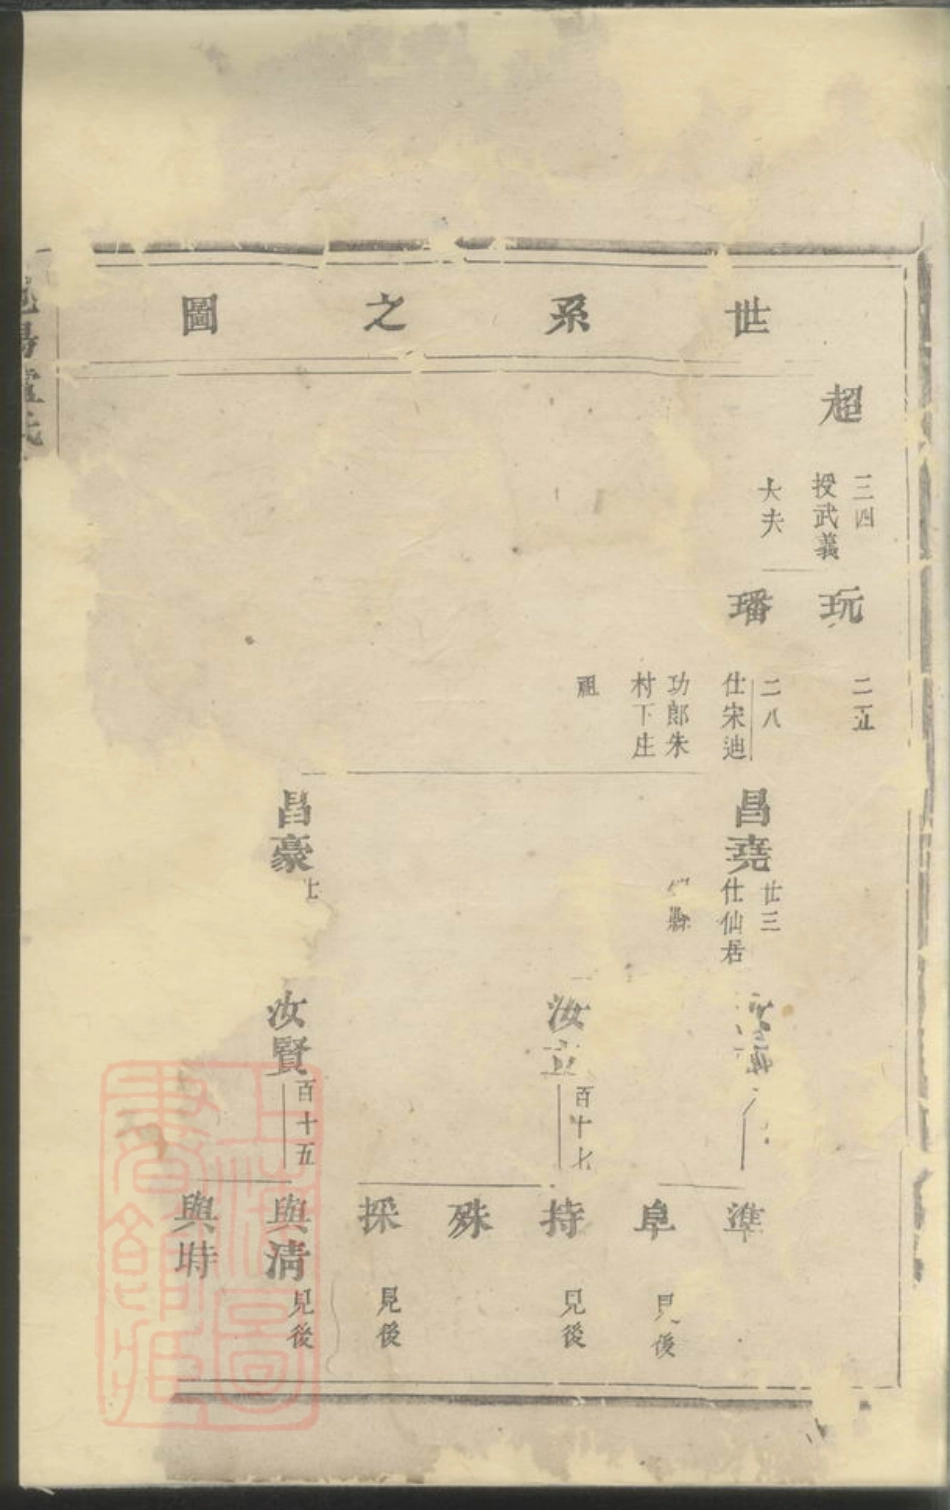 世系之圖
超
三四
授武義
大夫
玩
二五
璠
二八
仕宋迪
功郎朱
村下庄
祖
昌堯
廿三
仕仙居
縣
昌豪
仕
汝
百十七
汝賢
百十五
準
阜
見後
持
見後
殊
採
見後
與清
見後
與時
上海圖
書館藏
氏